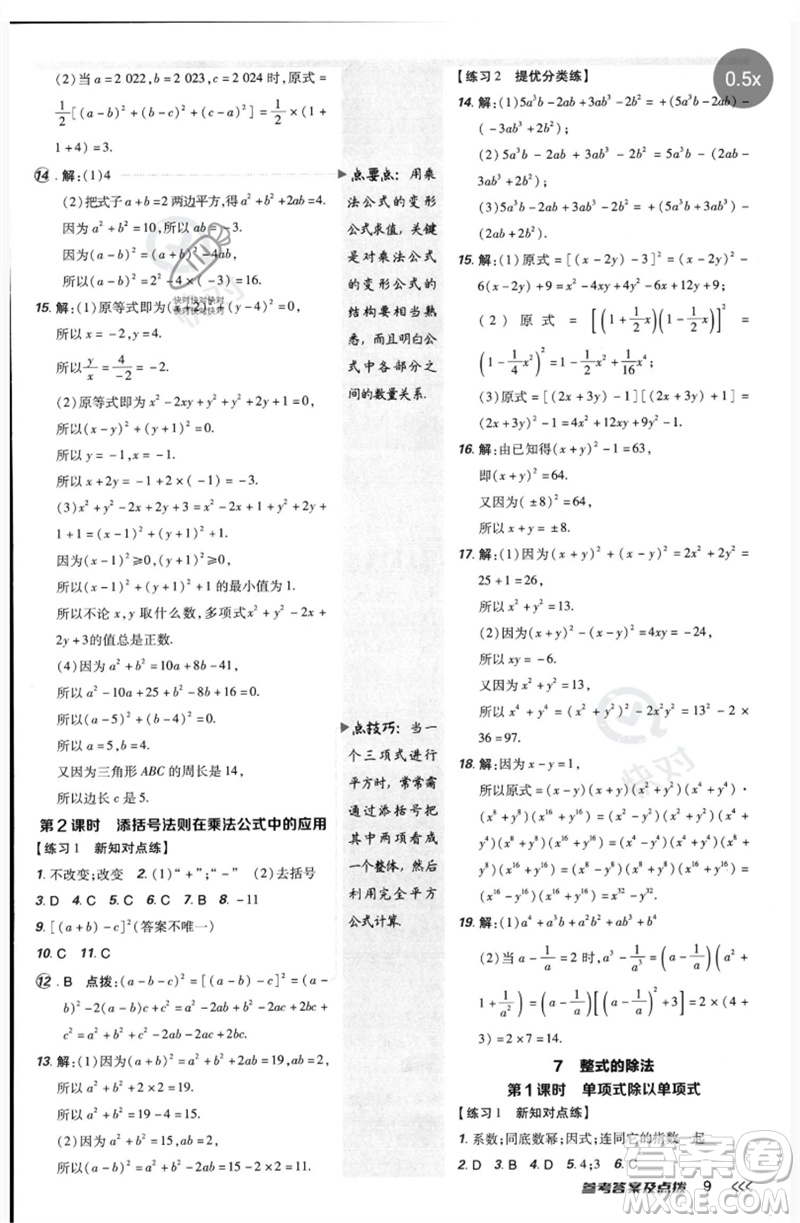 (2)当 a=2 022,b=2 023,c=2 024 时,原式=
1/2[(a-b)²+(b-c)²+(c-a)²]=1/2×(1+
1+4)=3.
14.解:(1)4
(2)把式子 a+b=2 两边平方,得 a²+b²+2ab=4.
因为 a²+b²=10,所以 ab=-3.
因为(a-b)²=(a+b)²-4ab,
所以(a-b)²=2²-4×(-3)=16.
15.解:(1)原等式即为(x+2)²+(y-4)²=0,
所以 x=-2,y=4.
所以 y/x=4/-2=-2.
(2)原等式即为 x²-2xy+y²+y²+2y+1=0,
所以(x-y)²+(y+1)²=0.
所以 x=y=-1,
所以 x+2y=-1+2×(-1)=-3.
(3)x²+y²-2x+2y+3=x²-2x+1+y²+2y+
1+1=(x-1)²+(y+1)²+1.
因为(x-1)²≥0,(y+1)²≥0,
所以(x-1)²+(y+1)²+1 的最小值为 1.
所以不论 x,y 取什么数,多项式x²+y²-2x+
2y+3的值总是正数.
(4)因为 a²+b²=10a+8b-41,
所以 a²-10a+25+b²-8b+16=0.
所以(a-5)²+(b-4)²=0.
所以 a=5,b=4.
又因为三角形 ABC 的周长是 14,
所以边长 c 是 5.
第2课时 添括号法则在乘法公式中的应用
【练习1 新知对点练】
1. 不改变;改变 2.(1)“+”;“-” (2)去括号
3. D 4. C 5. C 6. C 7. B 8. -11
9.[(a+b)-c]²(答案不唯一)
10. C 11. C
12. B 点拨:(a-b-c)²=[(a-b)-c]²=(a-
b)²-2(a-b)c+c²=a²+b²-2ab-2ac+2bc+
c²=a²+b²+c²-2ab-2ac+2bc.
13.解:(1)因为(a+b)²=a²+b²+2ab=19,ab=2,
所以 a²+b²+2×2=19.
所以 a²+b²=19-4=15.
(2)因为(a+b)²=a²+b²+2ab=19,ab=2,
所以 a²+b²+2×2=19,所以 a²+b²=15.
所以(a-b)²=a²+b²-2ab=15-4=11.
点要点:用乘
法公式的变形
公式求值,关键
是对乘法公式
的变形公式的
结构要相当熟
悉,而且明白公
式中各部分之
间的数量关系.
点技巧:当一
个三项式进行
平方时,常常需
通过添括号把
其中两项看成
一个整体,然后
利用完全平方
公式计算.
【练习2 提优分类练】
0.5x
14.解:(1)5a³b-2ab+3ab³-2b²=+(5a³b-2ab)-
(-3ab³+2b²);
(2)5a³b-2ab+3ab³-2b²=-(-5a³b+2ab)+
(3ab³-2b²);
(3)5a³b-2ab+3ab³-2b²=+(5a³b+3ab³)-
(2ab+2b²).
15.解:(1)原式=[(x-2y)-3]²=(x-2y)²-
6(x-2y)+9=x²-4xy+4y²-6x+12y+9;
(2)原式=[(1+1/2x)(1-1/2x)]²=
(1-1/4x²)²=1-1/2x²+1/16x⁴;
(3)原式=[(2x+3y)-1][(2x+3y)+1]=
(2x+3y)²-1=4x²+12xy+9y²-1.
16.解:由已知得(x+y)²-1=63,
即(x+y)²=64.
又因为(±8)²=64,
所以 x+y=±8.
17.解:(1)因为(x+y)²+(x-y)²=2x²+2y²=
25+1=26,
所以 x²+y²=13.
(2)因为(x+y)²-(x-y)²=4xy=-24,
所以 xy=-6.
又因为 x²+y²=13,
所以 x⁴+y⁴=(x²+y²)²-2x²y²=13²-2×
36=97.
18.解:因为 x-y=1,
所以原式=(x-y)(x+y)(x²+y²)(x⁴+y⁴)
(x⁸+y⁸)(x¹⁶+y¹⁶)=(x²-y²)(x²+y²)(x⁴+
y⁴)(x⁸+y⁸)(x¹⁶+y¹⁶)=(x⁴-y⁴)(x⁴+y⁴)(x⁸+
y⁸)(x¹⁶+y¹⁶)=(x⁸-y⁸)(x⁸+y⁸)(x¹⁶+y¹⁶)=
(x¹⁶-y¹⁶)(x¹⁶+y¹⁶)=x³²-y³².
19.解:(1)a⁴+a³b+a²b²+ab³+b⁴
(2)当 a-1/a=2 时,a³-1/a³=(a-1/a)(a²+
1+1/a²)=(a-1/a)[(a-1/a)²+3]=2×(4+
3)=2×7=14.
7 整式的除法
第1课时 单项式除以单项式
【练习1 新知对点练】
1. 系数;同底数幂;因式;连同它的指数一起
2. D 3. D 4. D 5. 4;3 6. C
参考答案及点拨 9
快对
快对快对快对
快对快对快对
快对
答案圈